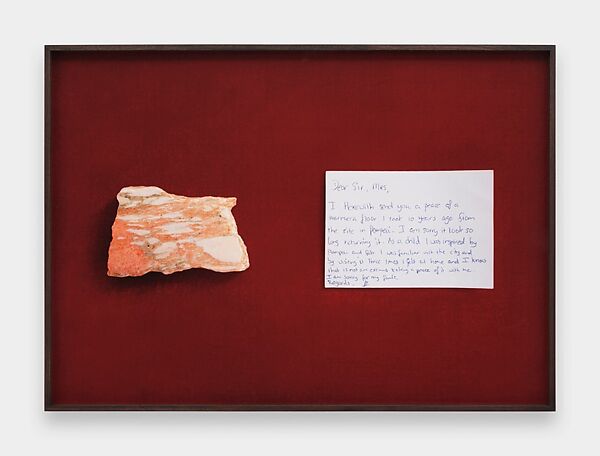 Dear Sir, Mrs,
I herewith send you a peace of a
marmera floor I took 10 years ago from
the site in Pompeii. I am sorry it took so
long returning it. As a child I was inspired by
Pompeii and felt I was familiar with the city and
by visiting it three times I felt at home and I know
that is not an excuse taking a peace of it with me
I am sorry for my fault
Regards